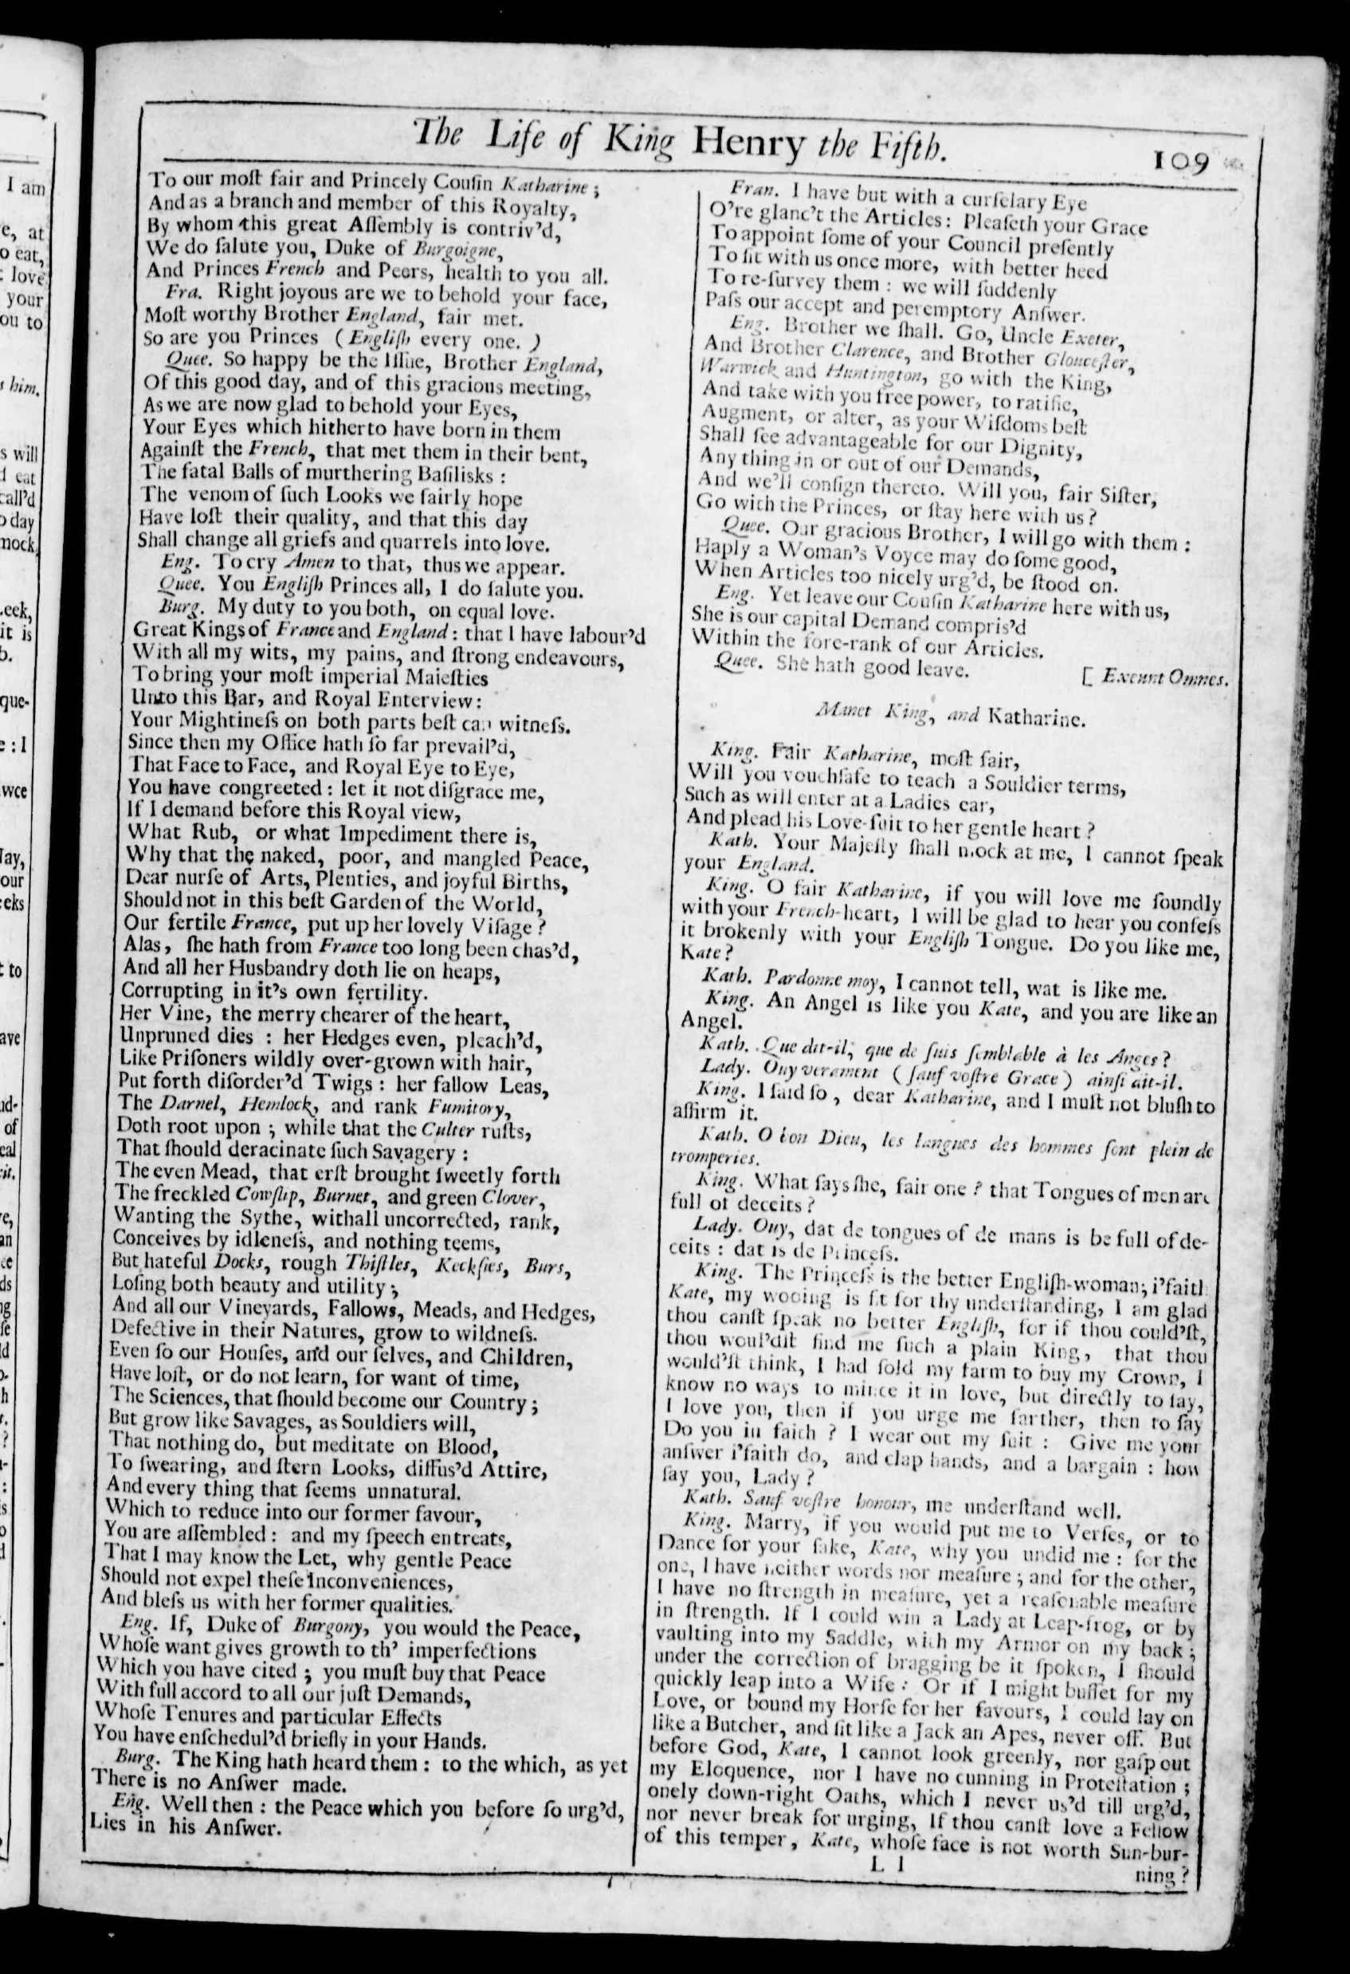 I am
e, at
o eat,
: love
your
ou to
him.
s will
l eat
call'd
o day
mock
eek,
it is
b.
que-
e : I
wce
lay,
our
eks
t to
ave
nd-
of
eal
The Life of King Henry the Fifth. 109
To our moſt fair and Princely Couſin Katharine;
And as a branch and member of this Royalty,
By whom this great Aſſembly is contriv'd,
We do ſalute you, Duke of Burgoigne,
And Princes French and Peers, health to you all.
Fra. Right joyous are we to behold your face,
Moſt worthy Brother England, fair met.
So are you Princes (Engliſh every one.)
Quee. So happy be the Iſſue, Brother England,
Of this good day, and of this gracious meeting,
As we are now glad to behold your Eyes,
Your Eyes which hitherto have born in them
Againſt the French, that met them in their bent,
The fatal Balls of murthering Baſilisks :
The venom of ſuch Looks we fairly hope
Have loſt their quality, and that this day
Shall change all griefs and quarrels into love.
Eng. To cry Amen to that, thus we appear.
Quee. You Engliſh Princes all, I do ſalute you.
Burg. My duty to you both, on equal love.
Great Kings of France and England : that I have labour'd
With all my wits, my pains, and ſtrong endeavours,
To bring your moſt imperial Maieſties
Unto this Bar, and Royal Enterview :
Your Mightineſs on both parts beſt can witneſs.
Since then my Office hath ſo far prevail'd,
That Face to Face, and Royal Eye to Eye,
You have congreeted : let it not diſgrace me,
If I demand before this Royal view,
What Rub, or what Impediment there is,
Why that the naked, poor, and mangled Peace,
Dear nurſe of Arts, Plenties, and joyful Births,
Should not in this beſt Garden of the World,
Our fertile France, put up her lovely Viſage ?
Alas, ſhe hath from France too long been chas'd,
And all her Husbandry doth lie on heaps,
Corrupting in it's own fertility.
Her Vine, the merry chearer of the heart,
Unpruned dies : her Hedges even, pleach'd,
Like Priſoners wildly over-grown with hair,
Put forth diſorder'd Twigs : her fallow Leas,
The Darnel, Hemlock, and rank Fumitory,
Doth root upon ; while that the Culter ruſts,
That ſhould deracinate ſuch Savagery :
The even Mead, that erſt brought ſweetly forth
The freckled Cowſlip, Burnet, and green Clover,
Wanting the Sythe, withall uncorrected, rank,
Conceives by idleneſs, and nothing teems,
But hateful Docks, rough Thiſtles, Keckſies, Burs,
Loſing both beauty and utility ;
And all our Vineyards, Fallows, Meads, and Hedges,
Defective in their Natures, grow to wildneſs.
Even ſo our Houſes, and our ſelves, and Children,
Have loſt, or do not learn, for want of time,
The Sciences, that ſhould become our Country ;
But grow like Savages, as Souldiers will,
That nothing do, but meditate on Blood,
To ſwearing, and ſtern Looks, diffus'd Attire,
And every thing that ſeems unnatural.
Which to reduce into our former favour,
You are aſſembled : and my ſpeech entreats,
That I may know the Let, why gentle Peace
Should not expel theſe Inconveniences,
And bleſs us with her former qualities.
Eng. If, Duke of Burgony, you would the Peace,
Whoſe want gives growth to th' imperfections
Which you have cited ; you muſt buy that Peace
With full accord to all our juſt Demands,
Whoſe Tenures and particular Effects
You have enſchedul'd briefly in your Hands.
Burg. The King hath heard them : to the which, as yet
There is no Anſwer made.
Eng. Well then : the Peace which you before ſo urg'd,
Lies in his Anſwer.
Fran. I have but with a curſelary Eye
O're glanc't the Articles : Pleaſeth your Grace
To appoint ſome of your Council preſently
To ſit with us once more, with better heed
To re-ſurvey them : we will ſuddenly
Paſs our accept and peremptory Anſwer.
Eng. Brother we ſhall. Go, Uncle Exeter,
And Brother Clarence, and Brother Glouceſter,
Warwick and Huntington, go with the King,
And take with you free power, to ratifie,
Augment, or alter, as your Wiſdoms beſt
Shall ſee advantageable for our Dignity,
Any thing in or out of our Demands,
And we'll conſign thereto. Will you, fair Siſter,
Go with the Princes, or ſtay here with us ?
Quee. Our gracious Brother, I will go with them :
Haply a Woman's Voyce may do ſome good,
When Articles too nicely urg'd, be ſtood on.
Eng. Yet leave our Couſin Katharine here with us,
She is our capital Demand compris'd
Within the fore-rank of our Articles.
Quee. She hath good leave. [ Exeunt Omnes.
Manet King, and Katharine.
King. Fair Katharine, moſt fair,
Will you vouchſafe to teach a Souldier terms,
Such as will enter at a Ladies ear,
And plead his Love-ſuit to her gentle heart ?
Kath. Your Majeſty ſhall mock at me, I cannot ſpeak
your England.
King. O fair Katharine, if you will love me ſoundly
with your French-heart, I will be glad to hear you confeſs
it brokenly with your Engliſh Tongue. Do you like me,
Kate ?
Kath. Pardonne moy, I cannot tell, wat is like me.
King. An Angel is like you Kate, and you are like an
Angel.
Kath. Que dit-il, que de ſuis ſemblable à les Anges ?
Lady. Ouy verament (ſauf voſtre Grace) ainſi dit-il.
King. I ſaid ſo, dear Katharine, and I muſt not bluſh to
affirm it.
Kath. O bon Dieu, les langues des hommes ſont plein de
tromperies.
King. What ſays ſhe, fair one ? that Tongues of men are
full of deceits ?
Lady. Ouy, dat de tongues of de mans is be full of de-
ceits : dat is de Princeſs.
King. The Princeſs is the better Engliſh-woman; i'faith
Kate, my wooing is fit for thy underſtanding, I am glad
thou canſt ſpeak no better Engliſh, for if thou could'ſt,
thou woul'dſt find me ſuch a plain King, that thou
would'ſt think, I had ſold my farm to buy my Crown, I
know no ways to mince it in love, but directly to ſay,
I love you, then if you urge me farther, then to ſay
Do you in faith ? I wear out my ſuit : Give me your
anſwer i'faith do, and clap hands, and a bargain : how
ſay you, Lady ?
Kath. Sauf voſtre honour, me underſtand well.
King. Marry, if you would put me to Verſes, or to
Dance for your ſake, Kate, why you undid me : for the
one, I have neither words nor meaſure ; and for the other,
I have no ſtrength in meaſure, yet a reaſonable meaſure
in ſtrength. If I could win a Lady at Leap-frog, or by
vaulting into my Saddle, with my Armor on my back ;
under the correction of bragging be it ſpoken, I ſhould
quickly leap into a Wife : Or if I might buffet for my
Love, or bound my Horſe for her favours, I could lay on
like a Butcher, and ſit like a Jack an Apes, never off. But
before God, Kate, I cannot look greenly, nor gaſp out
my Eloquence, nor I have no cunning in Proteſtation ;
onely down-right Oaths, which I never us'd till urg'd,
nor never break for urging, If thou canſt love a Fellow
of this temper, Kate, whoſe face is not worth Sun-bur-
L l
ning ?